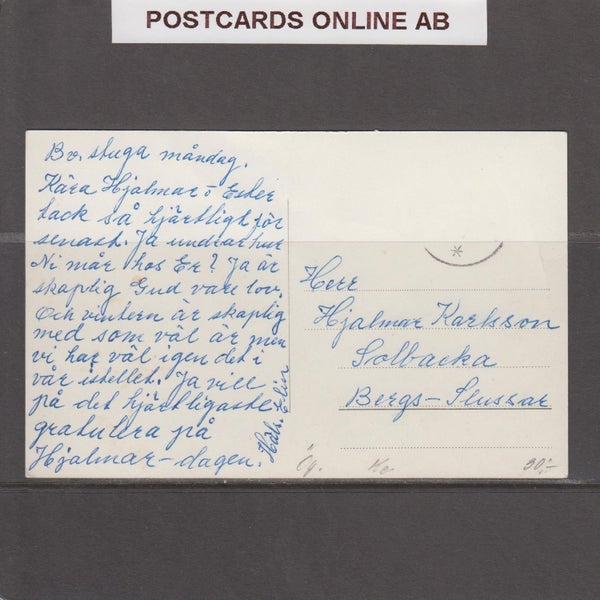 POSTCARDS ONLINE AB
Bv. stuga måndag.
Kära Hjalmar o Ester
tack så hjärtligt för
senast. Ja undrar hur
Ni mår hos Er? Ja är
skaplig Gud vare lov.
Och vintern är skaplig
med som väl är men
vi har väl igen det i
vår istellet. Ja vill
på det hjärtligaste
gratulera på
Hjalmar-dagen.
Häls. Elin
Herr
Hjalmar Karlsson
Solbacka
Bergs-Slussar
30:-